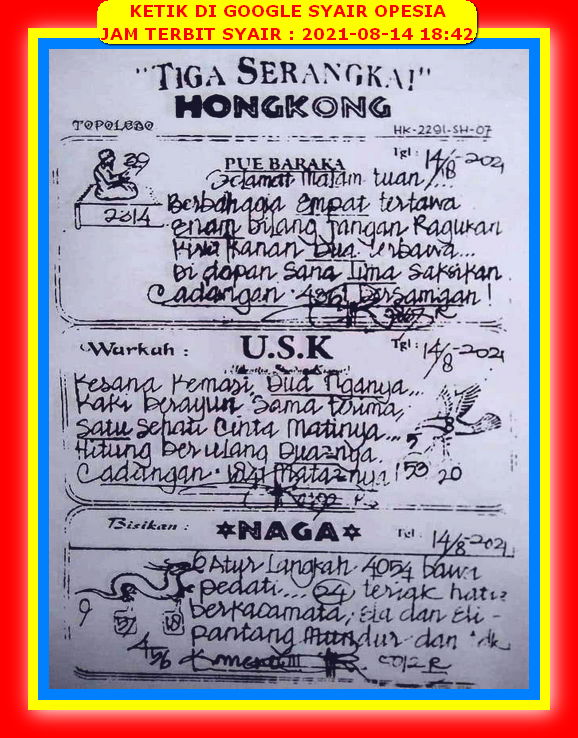 KETIK DI GOOGLE SYAIR OPESIA
JAM TERBIT SYAIR : 2021-08-14 18:42
"TIGA SERANGKAI"
HONGKONG
TOPOLEBO
HK-2291-SH-07
PUE BARAKA
Tgl : 14/8-2021
39
2314
Selamat Malam tuan ...
Berbahagia empat tertawa
enam bilang jangan Ragukan
Kiri Kanan Dua terbawa...
Di depan Sana Lima Saksikan
Cadangan : 4361 Bersamaan !
Warkah :
U.S.K
Tgl : 14/8-2021
Kesana Kemari Dua Tiganya...
Kaki berayun Sama terima
Satu Sehati Cinta Matinya...
Hitung berulang Dua2nya
Cadangan : 1841 Mata2nya !
53 20
Bisikan :
NAGA
Tgl : 14/8-2021
6
9
57
18
456
Atur Langkah 4054 bawa
pedati... 64 teriak hati2
berkacamata, Ela dan Eli-
pantang Mundur dan